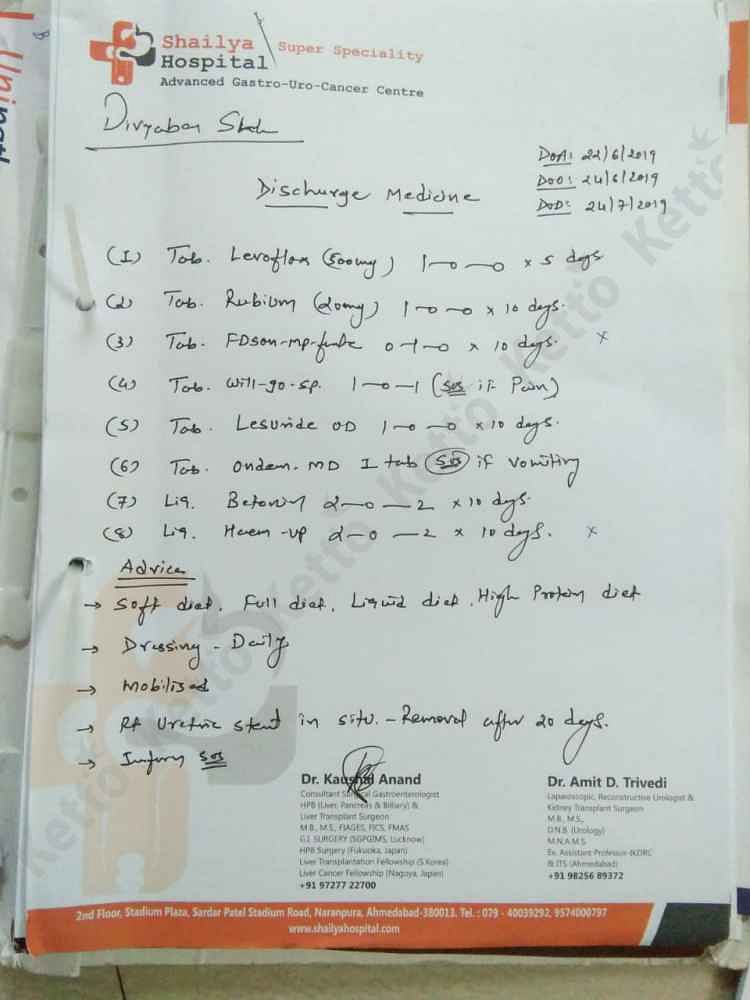 Shailya Super Speciality
Hospital
Advanced Gastro-Uro-Cancer Centre
Divyaben Shah
DOA: 22/6/2019
DOO: 24/6/2019
DOD: 24/7/2019
Discharge Medicine
(1) Tab. Levoflox (500mg) 1-0-0 x 5 days
(2) Tab. (20mg) 1-0-0 x 10 days.
(3) Tab. FDson-mp-forte 0-1-0 x 10 days. x
(4) Tab. Will-go-sp. 1-0-1 (SOS if Pain)
(5) Tab. Lesuride OD 1-0-0 x 10 days.
(6) Tab. Ondem-MD 1 tab SOS if vomiting
(7) Liq. 2-0-2 x 10 days.
(8) Liq. Haem-up 2-0-2 x 10 days. x
Advice
→ Soft diet, Full diet, Liquid diet, High Protein diet
→ Dressing - Daily
→ Mobilised
→ Rt Ureteric stent in situ. - Removal after 20 days.
→ Inform SOS
Dr. Kaushal Anand
Consultant Surgical Gastroenterologist
HPB (Liver, Pancreas & Billiary) &
Liver Transplant Surgeon
M.B., M.S., FIAGES, FICS, FMAS
G.I. SURGERY (SGPGIMS, Lucknow)
HPB Surgery (Fukuoka, Japan)
Liver Transplantation Fellowship (S Korea)
Liver Cancer Fellowship (Nagoya, Japan)
+91 97277 22700
Dr. Amit D. Trivedi
Laparoscopic, Reconstructive Urologist &
Kidney Transplant Surgeon
M.B., M.S.,
D.N.B. (Urology)
M.N.A.M.S.
Ex. Assistant Professor-IKDRC
& ITS (Ahmedabad)
+91 98256 89372
2nd Floor, Stadium Plaza, Sardar Patel Stadium Road, Naranpura, Ahmedabad-380013. Tel. : 079 - 40039292, 9574000797
www.shailyahospital.com
Ketto Ketto Ketto Ketto Ketto Ketto Ketto